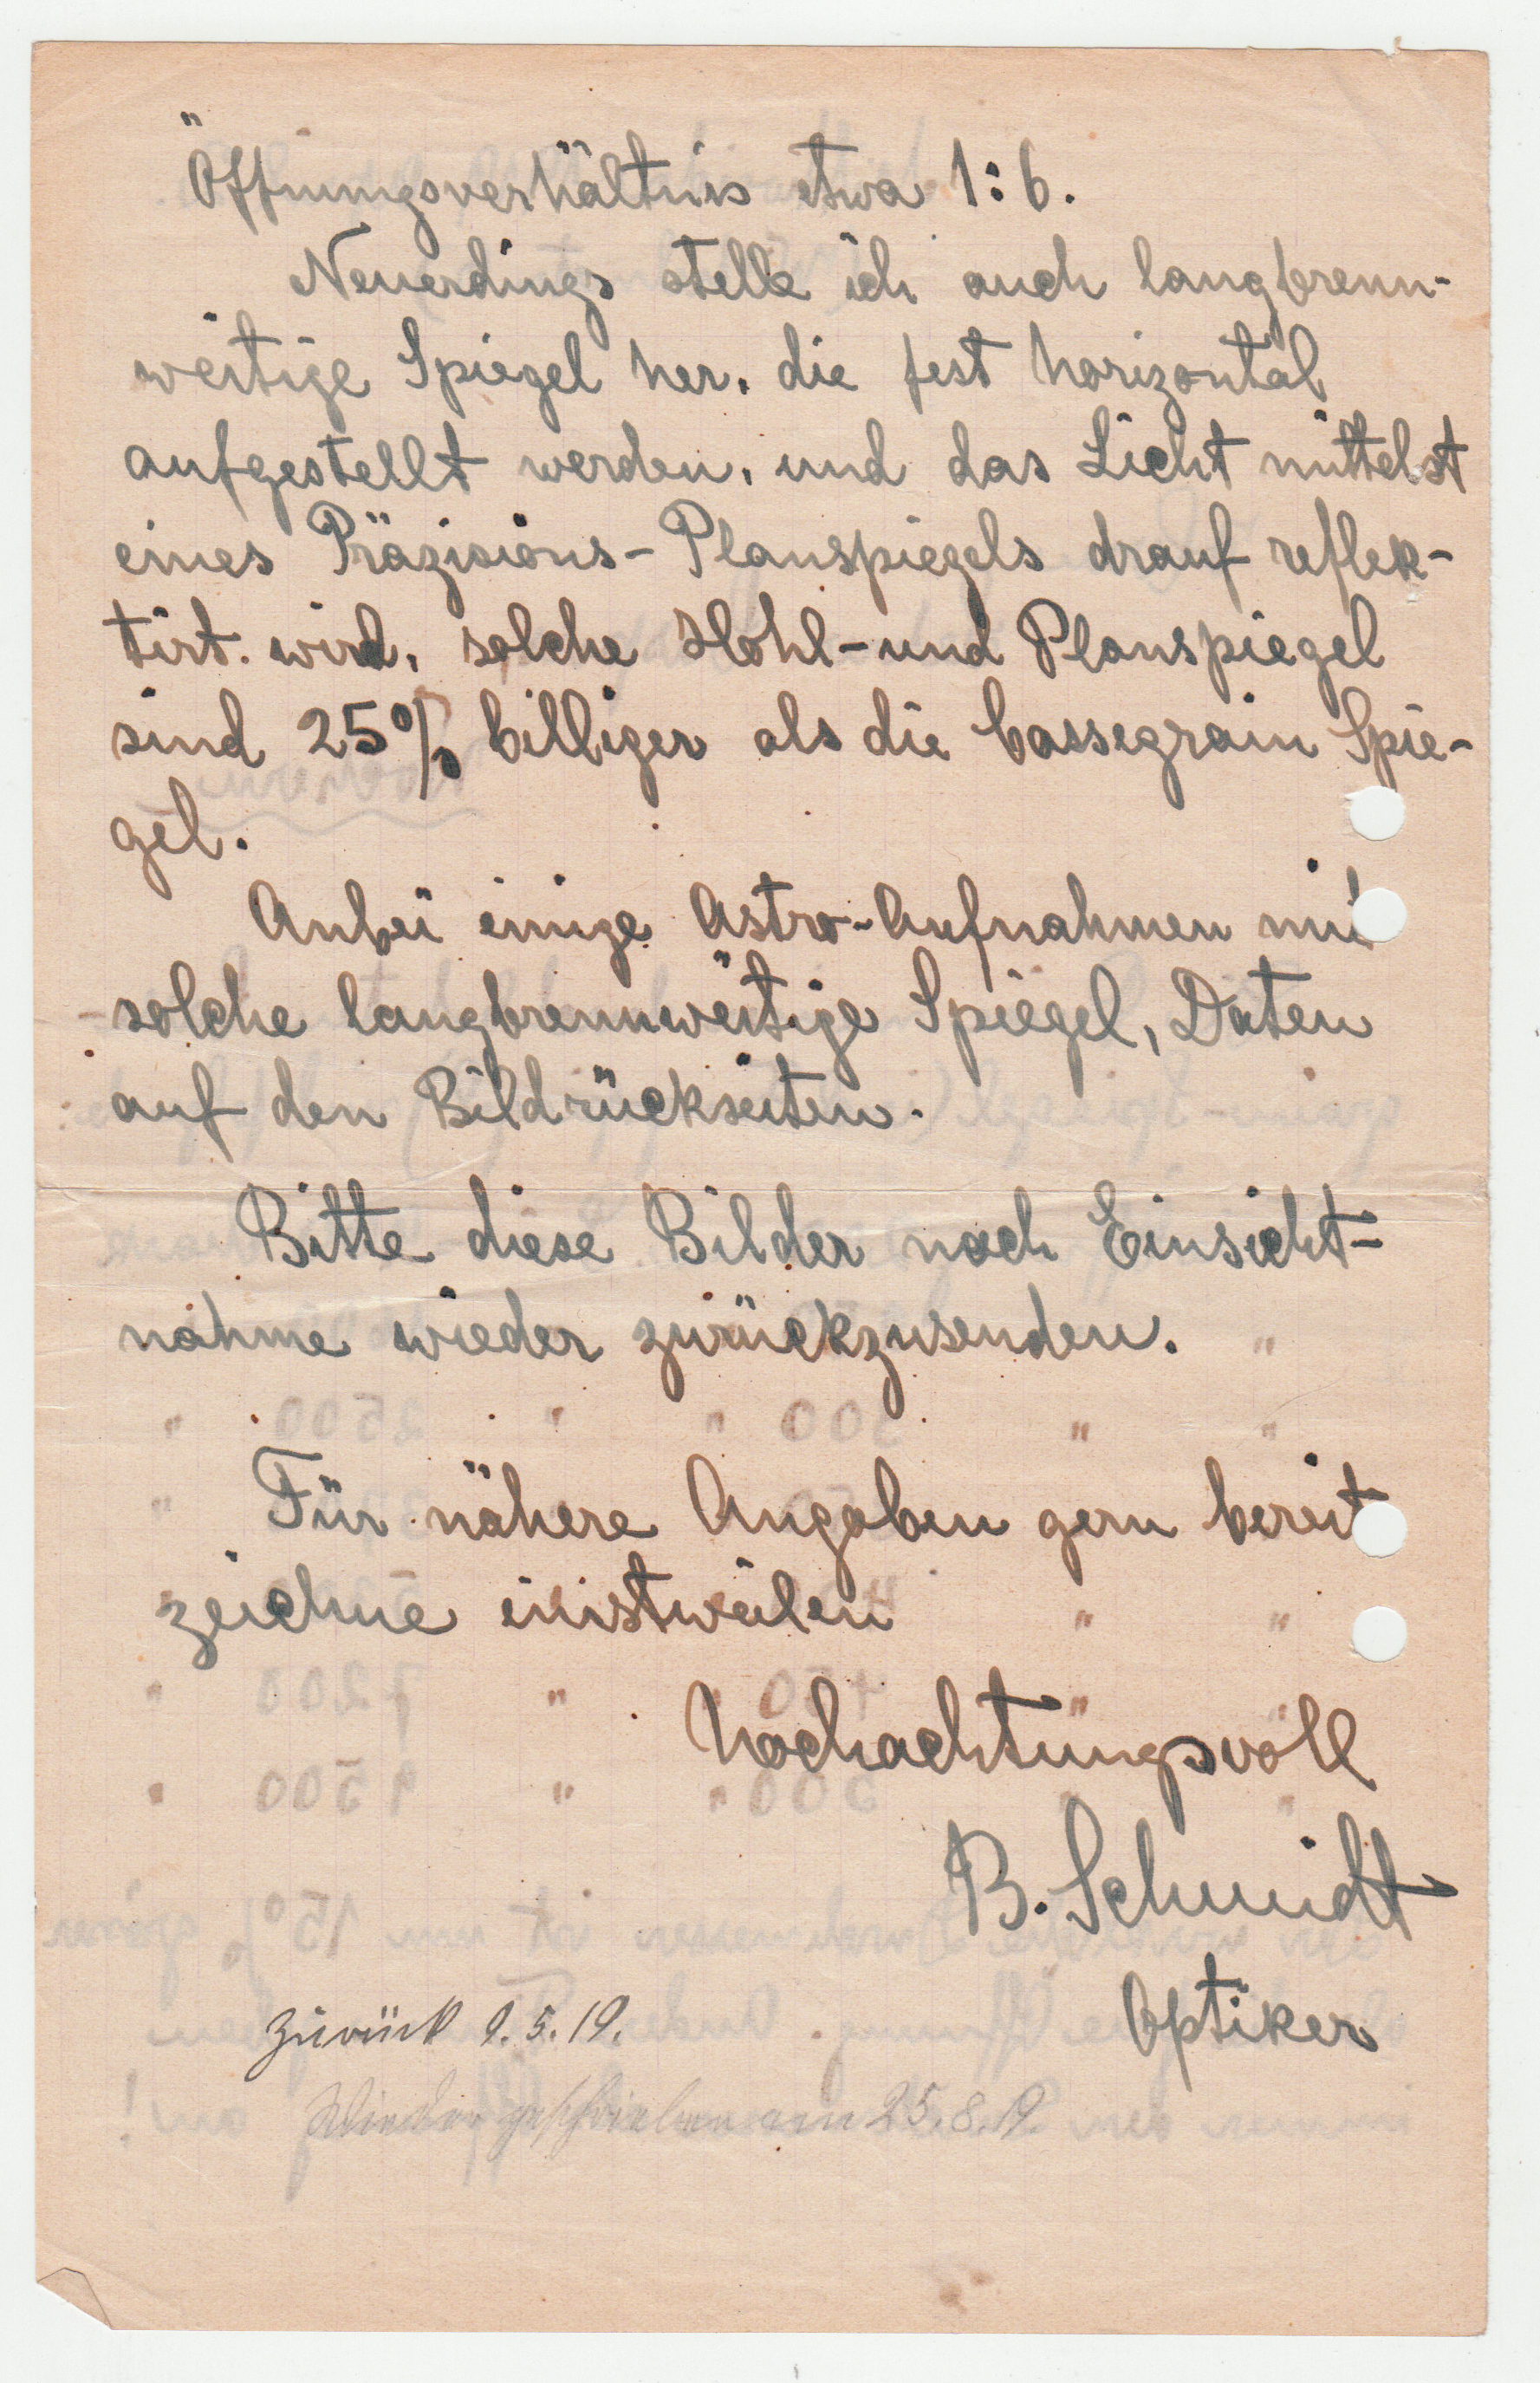 Öffnungsverhältnis etwa 1:6.
Neuerdings stelle ich auch langbrenn-
weitige Spiegel her, die fest horizontal
aufgestellt werden, und das Licht mittelst
eines Präzisions-Planspiegels drauf reflek-
tirt wird, solche Hohl- und Planspiegel
sind 25% billiger als die Cassegrain Spie-
gel.
Anbei einige Astro-Aufnahmen mit
solche langbrennweitige Spiegel, Daten
auf den Bildrückseiten.
Bitte diese Bilder nach Einsicht-
nahme wieder zurückzusenden.
Für nähere Angaben gern bereit
zeichne einstweilen
Hochachtungsvoll
B. Schmidt
Optiker
Zurück 9.5.19.
Wieder geschrieben am 25.8.19.